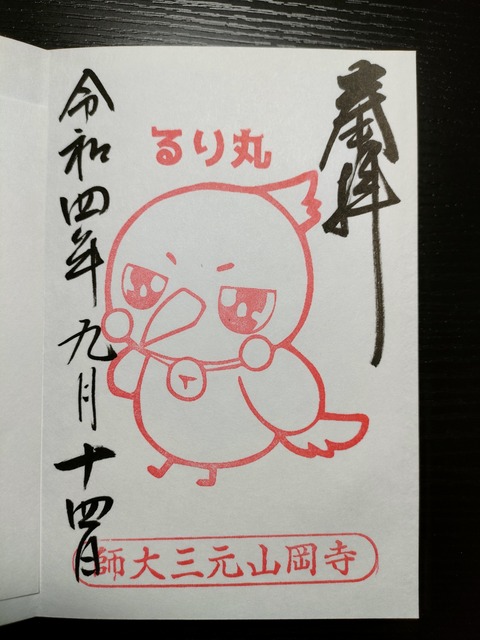 奉拝
るり丸
令和四年九月十四日
寺岡山元三大師